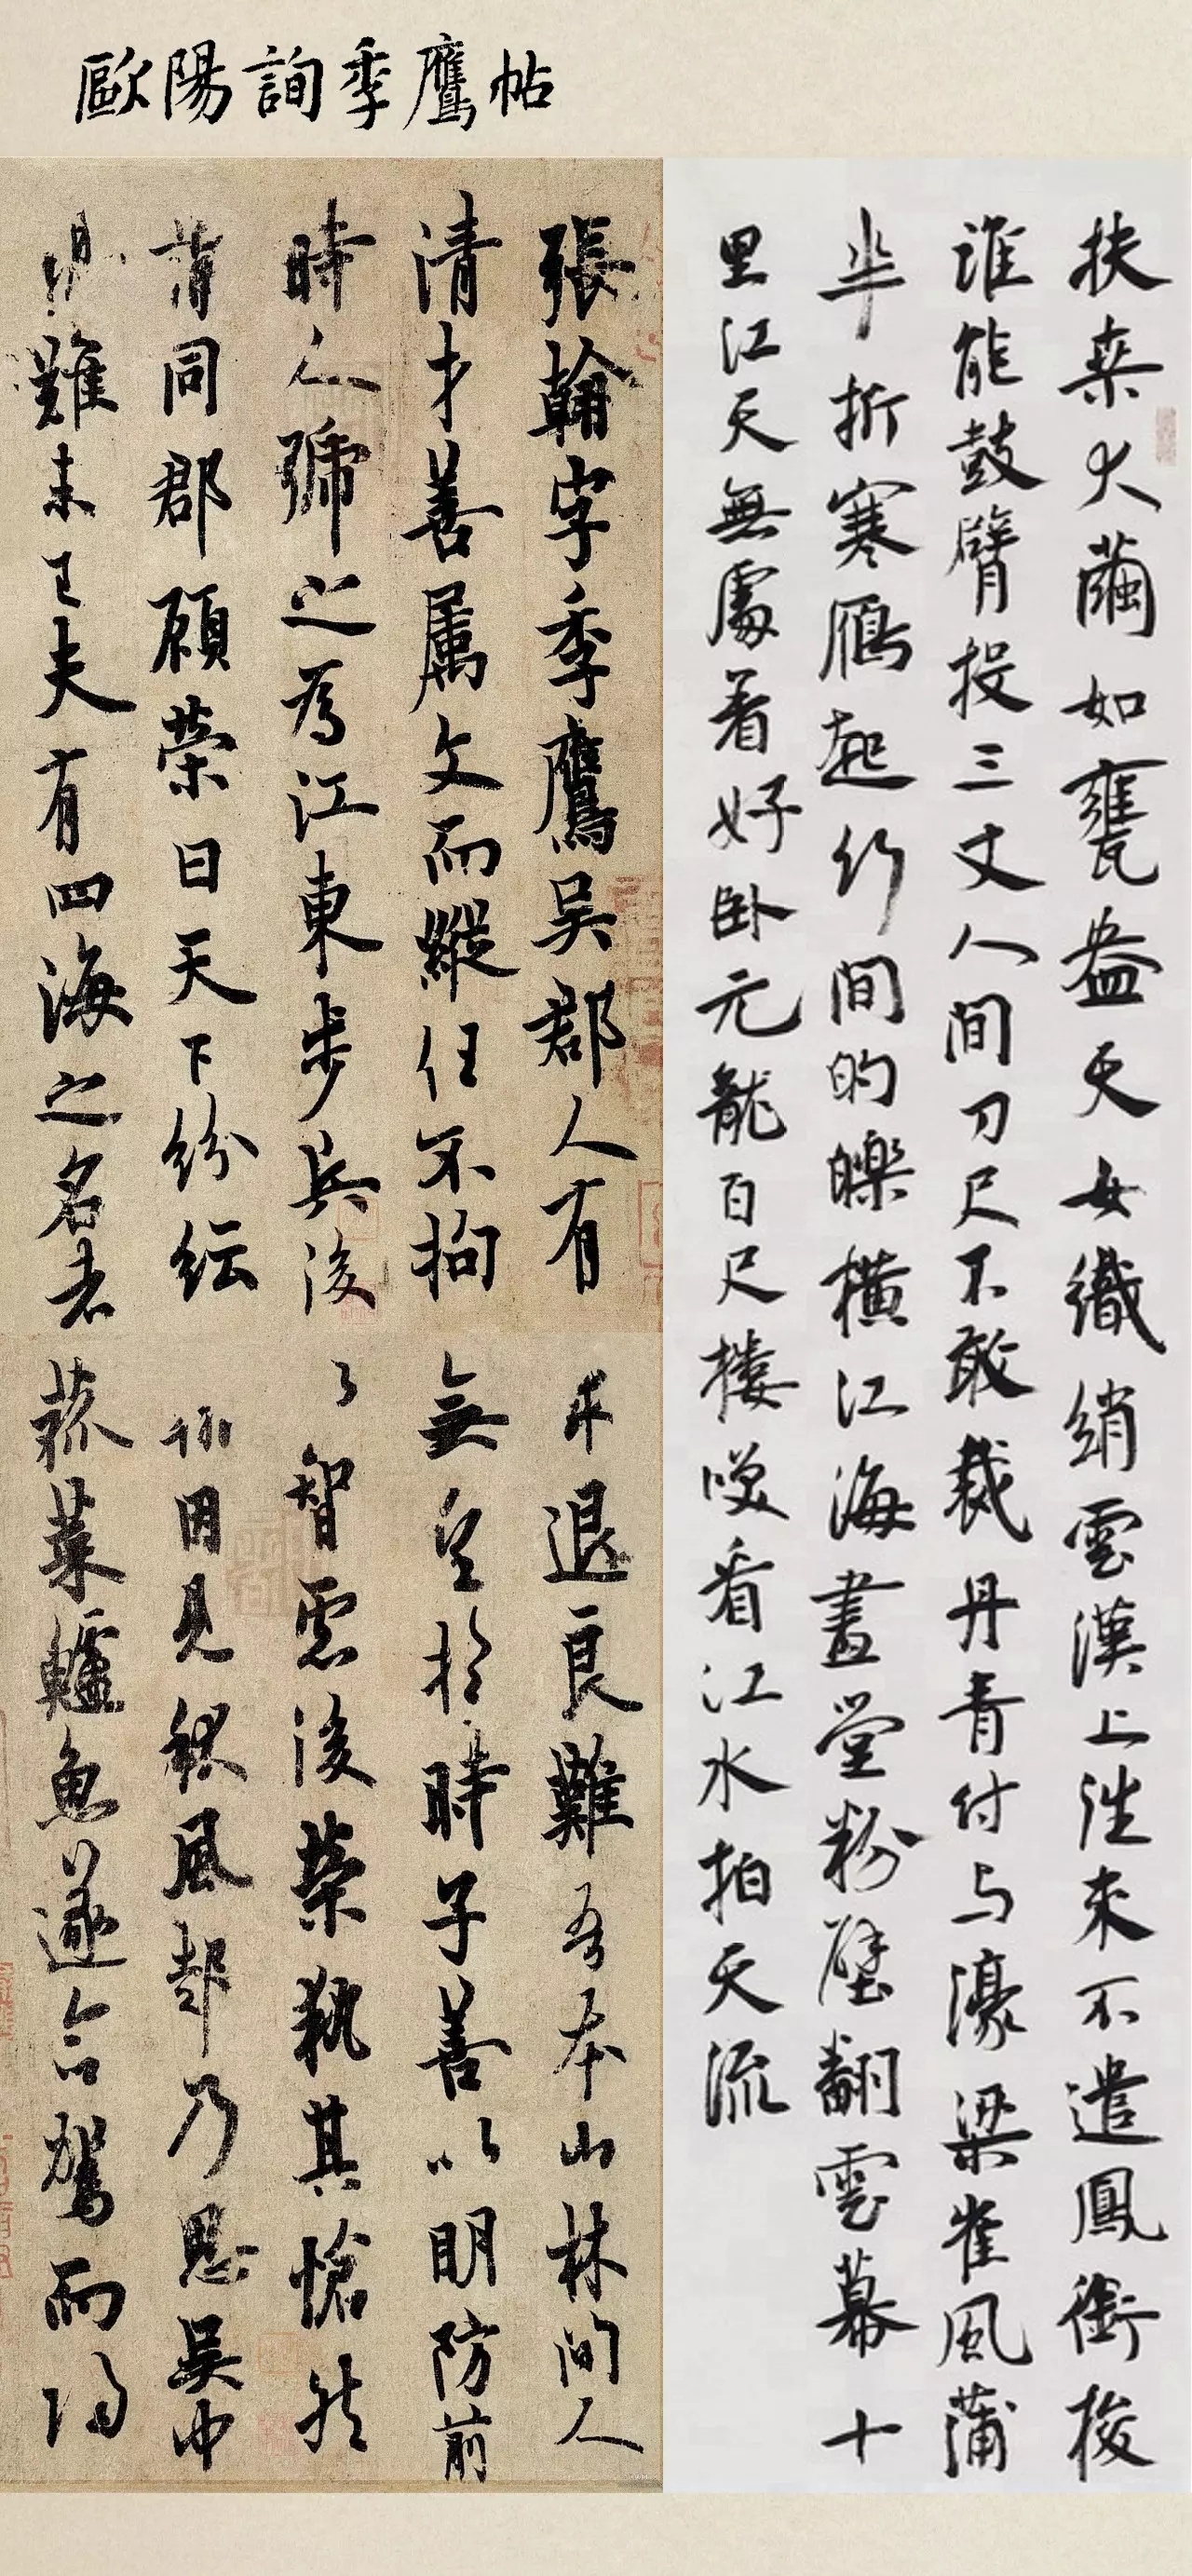 歐陽詢季鷹帖
扶桒火繭如甕盎天女織綃雲漢上往來不遣鳳銜梭
誰能鼓臂投三丈人間刀尺不敢裁丹青付与濠梁崔風蒲
半折寒鴈起竹間的皪橫江海畫堂粉壁翻雲幕十
里江天無處着好卧元龍百尺樓咲看江水拍天流
張翰字季鷹吴郡人有
清才善屬文而縱任不拘
時人號之為江東步兵後
謂同郡顧榮曰天下紛紜
禍難未已夫有四海之名者
求退良難吾本山林間人
無望於時子善以明防前
以智慮後榮執其愴然
翰因見秋風起乃思吴中
菰菜鱸魚遂命駕而歸